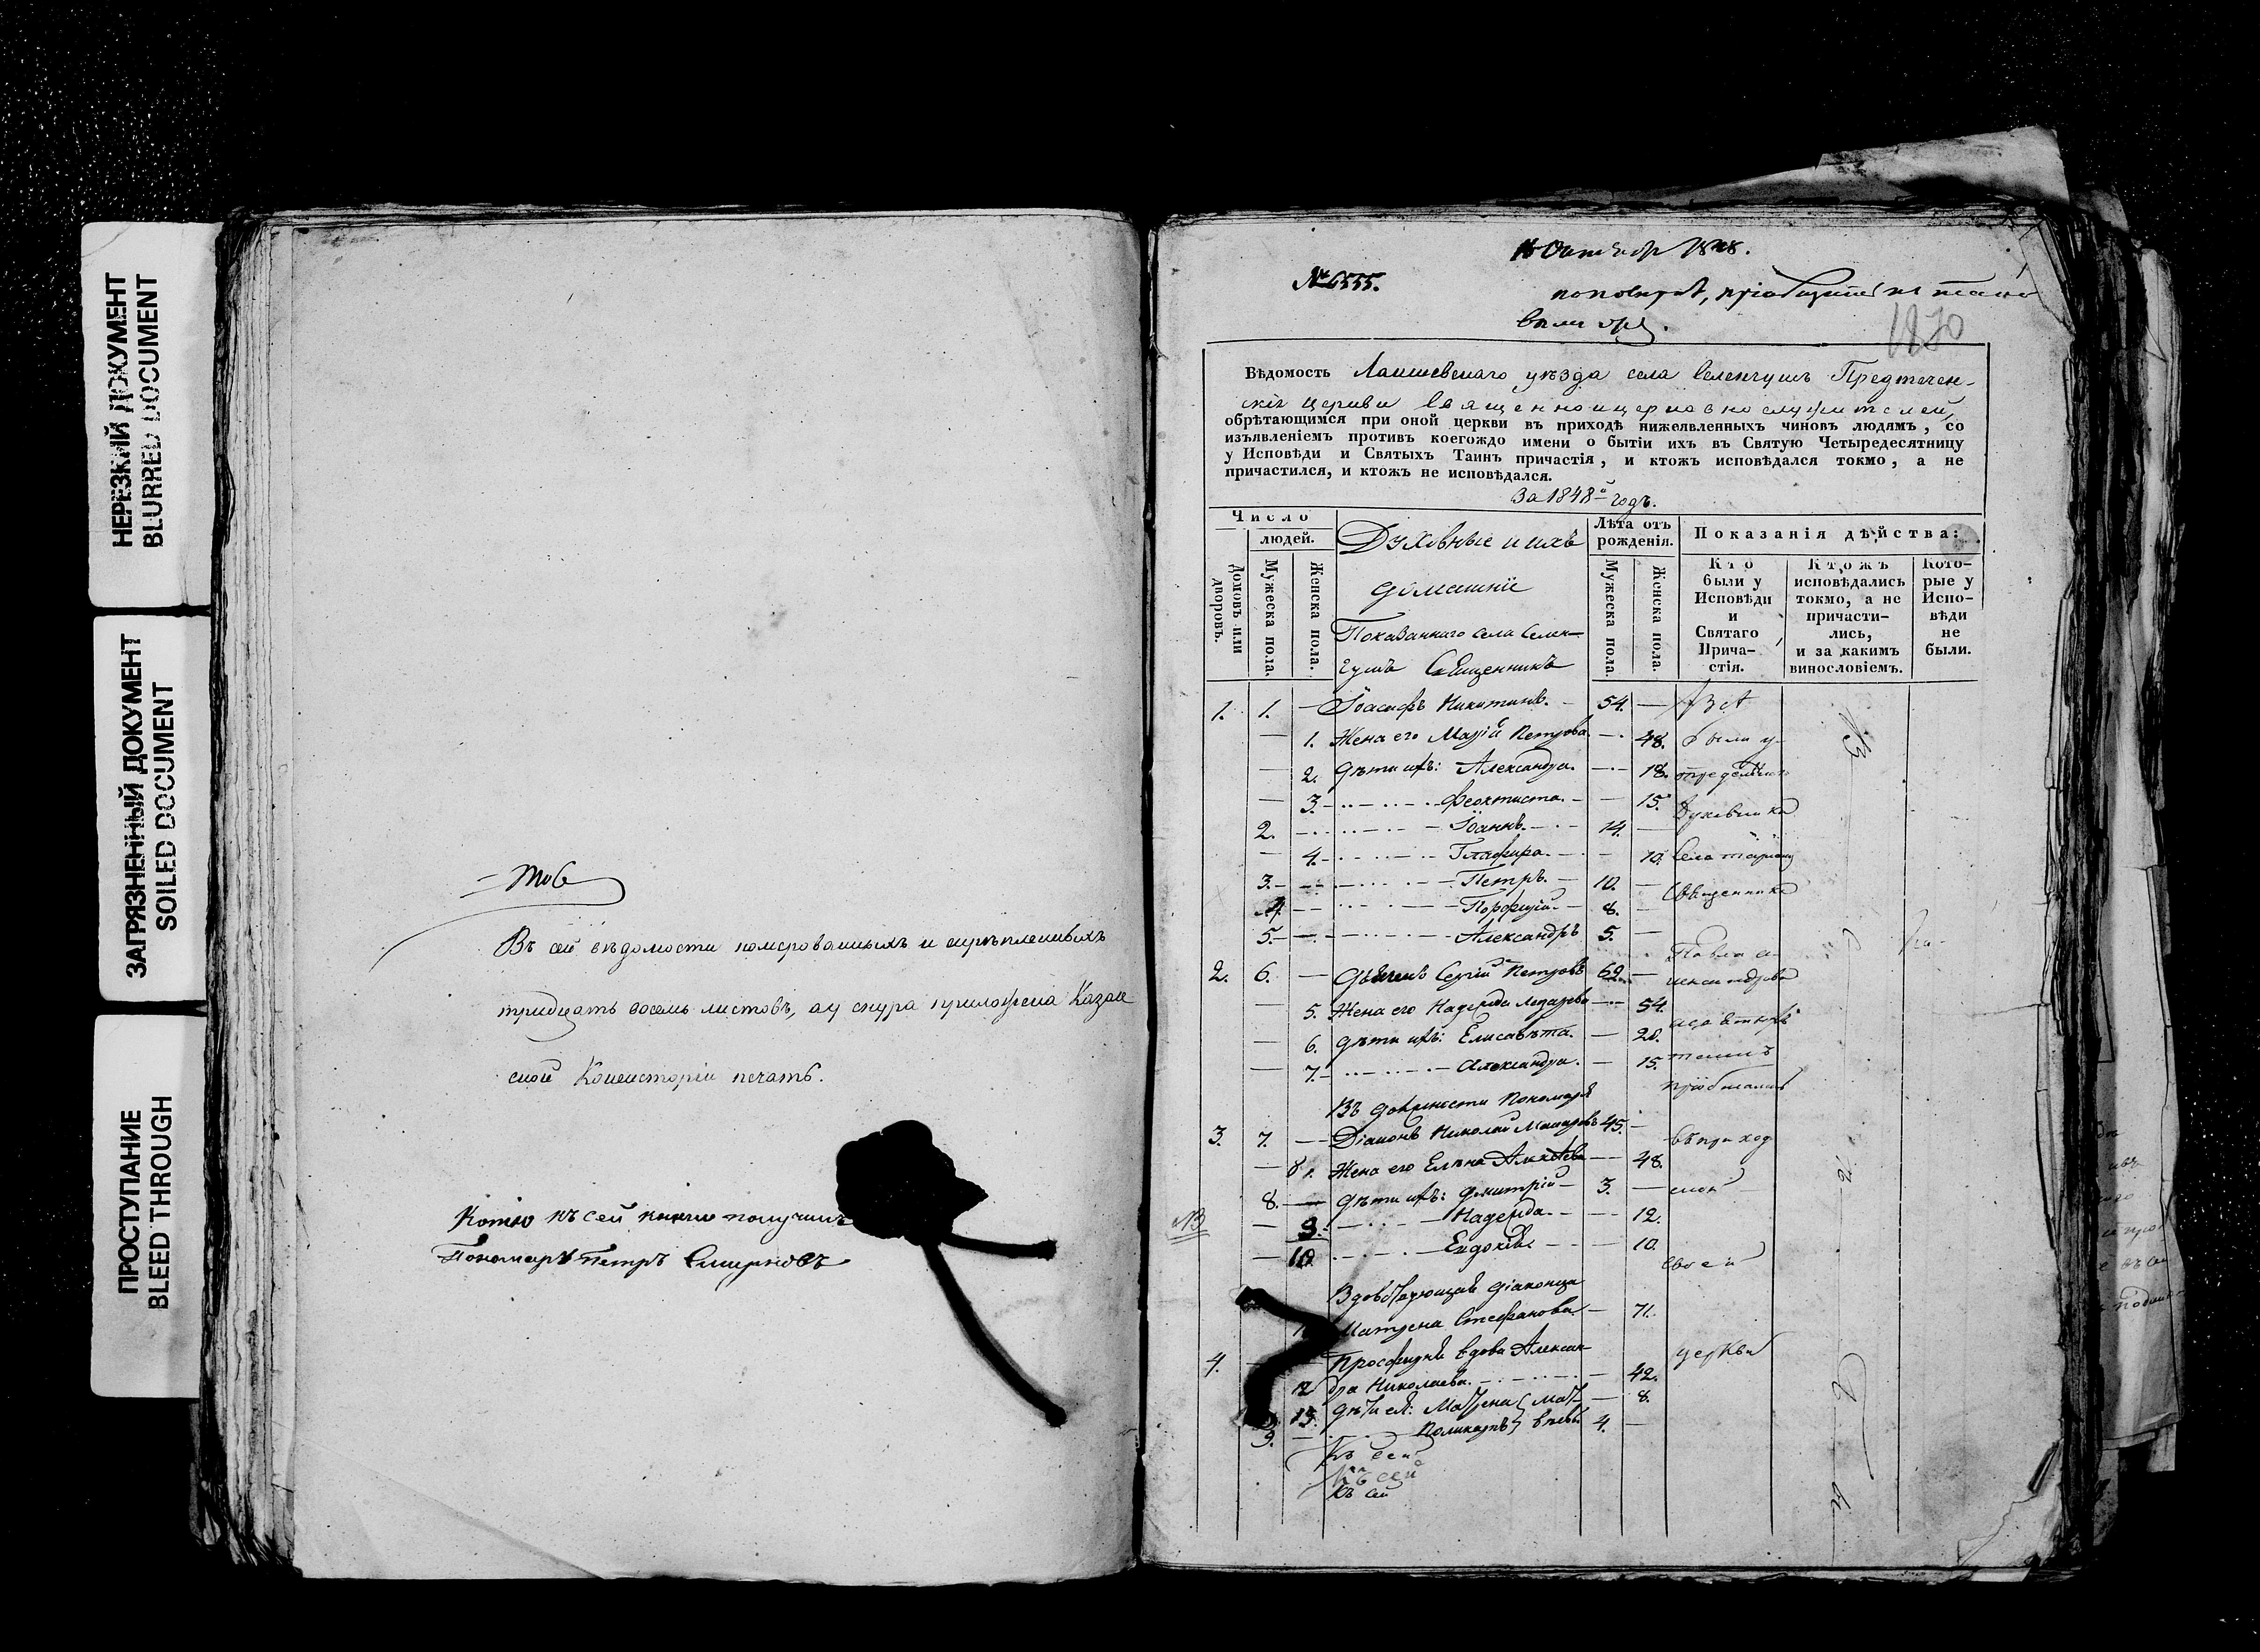 НЕРЕЗКИЙ ДОКУМЕНТ
BLURRED DOCUMENT
ЗАГРЯЗНЕННЫЙ ДОКУМЕНТ
SOILED DOCUMENT
ПРОСТУПАНИЕ
BLEED THROUGH
Въ сей вѣдомости номерованныхъ и скрѣпленныхъ
тридцать восемь листовъ, а у снура приложена Казан
ской Консисторіи печать.
Копію къ сей книги получилъ
Пономарь Петръ Смирновъ
№ 6555.
1870
Вѣдомость Лаишевскаго уѣзда села Селенгушъ Предтечен-
скія церкви священноицерковнослужителей,
обрѣтающимся при оной церкви въ приходѣ нижеявленныхъ чиновъ людямъ, со
изъявленіемъ противъ коегождо имени о бытіи ихъ въ Святую Четыредесятницу
у Исповѣди и Святыхъ Таинъ причастія, и ктожъ исповѣдался токмо, а не
причастился, и ктожъ не исповѣдался.
За 1848й годъ.
Число
людей.
Домовъ или дворовъ.
Мужеска пола.
Женска пола.
Духовные и ихъ
домашніе
Показаннаго села Селен-
гушъ Священникъ
Лѣта отъ
рожденія.
Мужеска пола.
Женска пола.
Показанія дѣйства:
Кто
были у
Исповѣди
и
Святаго
Прича-
стія.
Ктожъ
исповѣдались
токмо, а не
причасти-
лись,
и за какимъ
винословіемъ.
Кото-
рые у
Испо-
вѣди
не
были.
1. 1. — Іоасафъ Никитинъ. 54. —
— 1. Жена его Марія Петрова — 48. были у
— 2. Дѣти ихъ: Александра. — 18.
— 3. Феоктиста. — 15. духовника
2. — Іоаннъ. 14. —
— 4. Глафира. — 10. села
3. — Петръ. 10. — священника
4. — Порфирій. 8. —
5. — Александръ 5. —
Павла
2. 6. — Дьячекъ Сергій Петровъ 62. —
— 5. Жена его Надежда Лазарева — 54.
— 6. Дѣти ихъ: Елисавета. — 20.
— 7. Александра. — 15.
Въ должности Пономаря
3. 7. — Діаконъ Николай Макаровъ 45. — въ приход
— 8. Жена его Елена Алексѣева — 48.
8. — Дѣти ихъ: Дмитрій 3. — ской
— 9. Надежда. — 12.
— 10. Евдокія. — 10. своей
Вдовствующая діаконица
Матрена Стефанова — 71.
4. Просфирня вдова Алексан- церкви
12 дра Николаева. — 42.
13. Дѣти ея: Матрена — 8.
9. — Поликарпъ 4. —
Къ сей
Къ сей
Къ сей